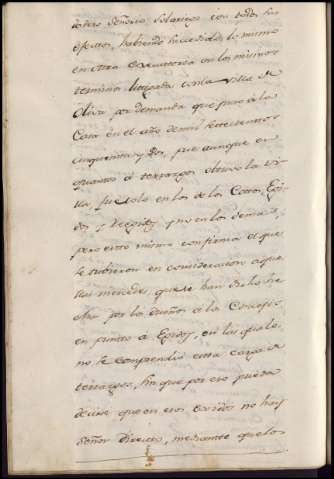 todos Señorio Solariego con todos sus
efectos, habiendo sucedido lo mismo
en otra Executoria en los mismos
terminos litigada con la Villa de
Oliva por demanda que puso a la
Casa en el año de mil setecientos
cinquenta y dos, pues aunque en
quanto a terrazgos obtuvo la Vi-
lla, fue solo en los de los Cotos, Exi-
dos y y no en los demas,
pero esto mismo confirma el que
se tubieron en consideracion aque-
llas mercedes, que se han dicho he-
chas por los Dueños a los Concejos
en punto a Exidos, en las quales
no se comprendia carga de
terrazgos, sin que por eso pueda
decirse que en esos exidos no hay
Señor Directo, mediante que los